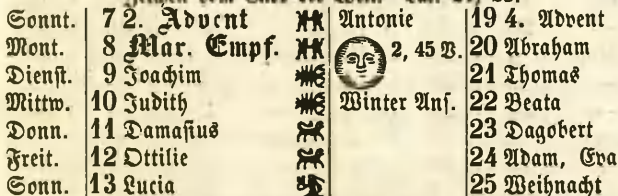 Sonnt. 7 2. Advent Antonie 19 4. Advent
Mont. 8 Mar. Empf. 2, 45 V. 20 Abraham
Dienst. 9 Joachim 21 Thomas
Mittw. 10 Judith Winter Anf. 22 Beata
Donn. 11 Damasius 23 Dagobert
Freit. 12 Ottilie 24 Adam, Eva
Sonn. 13 Lucia 25 Weihnacht